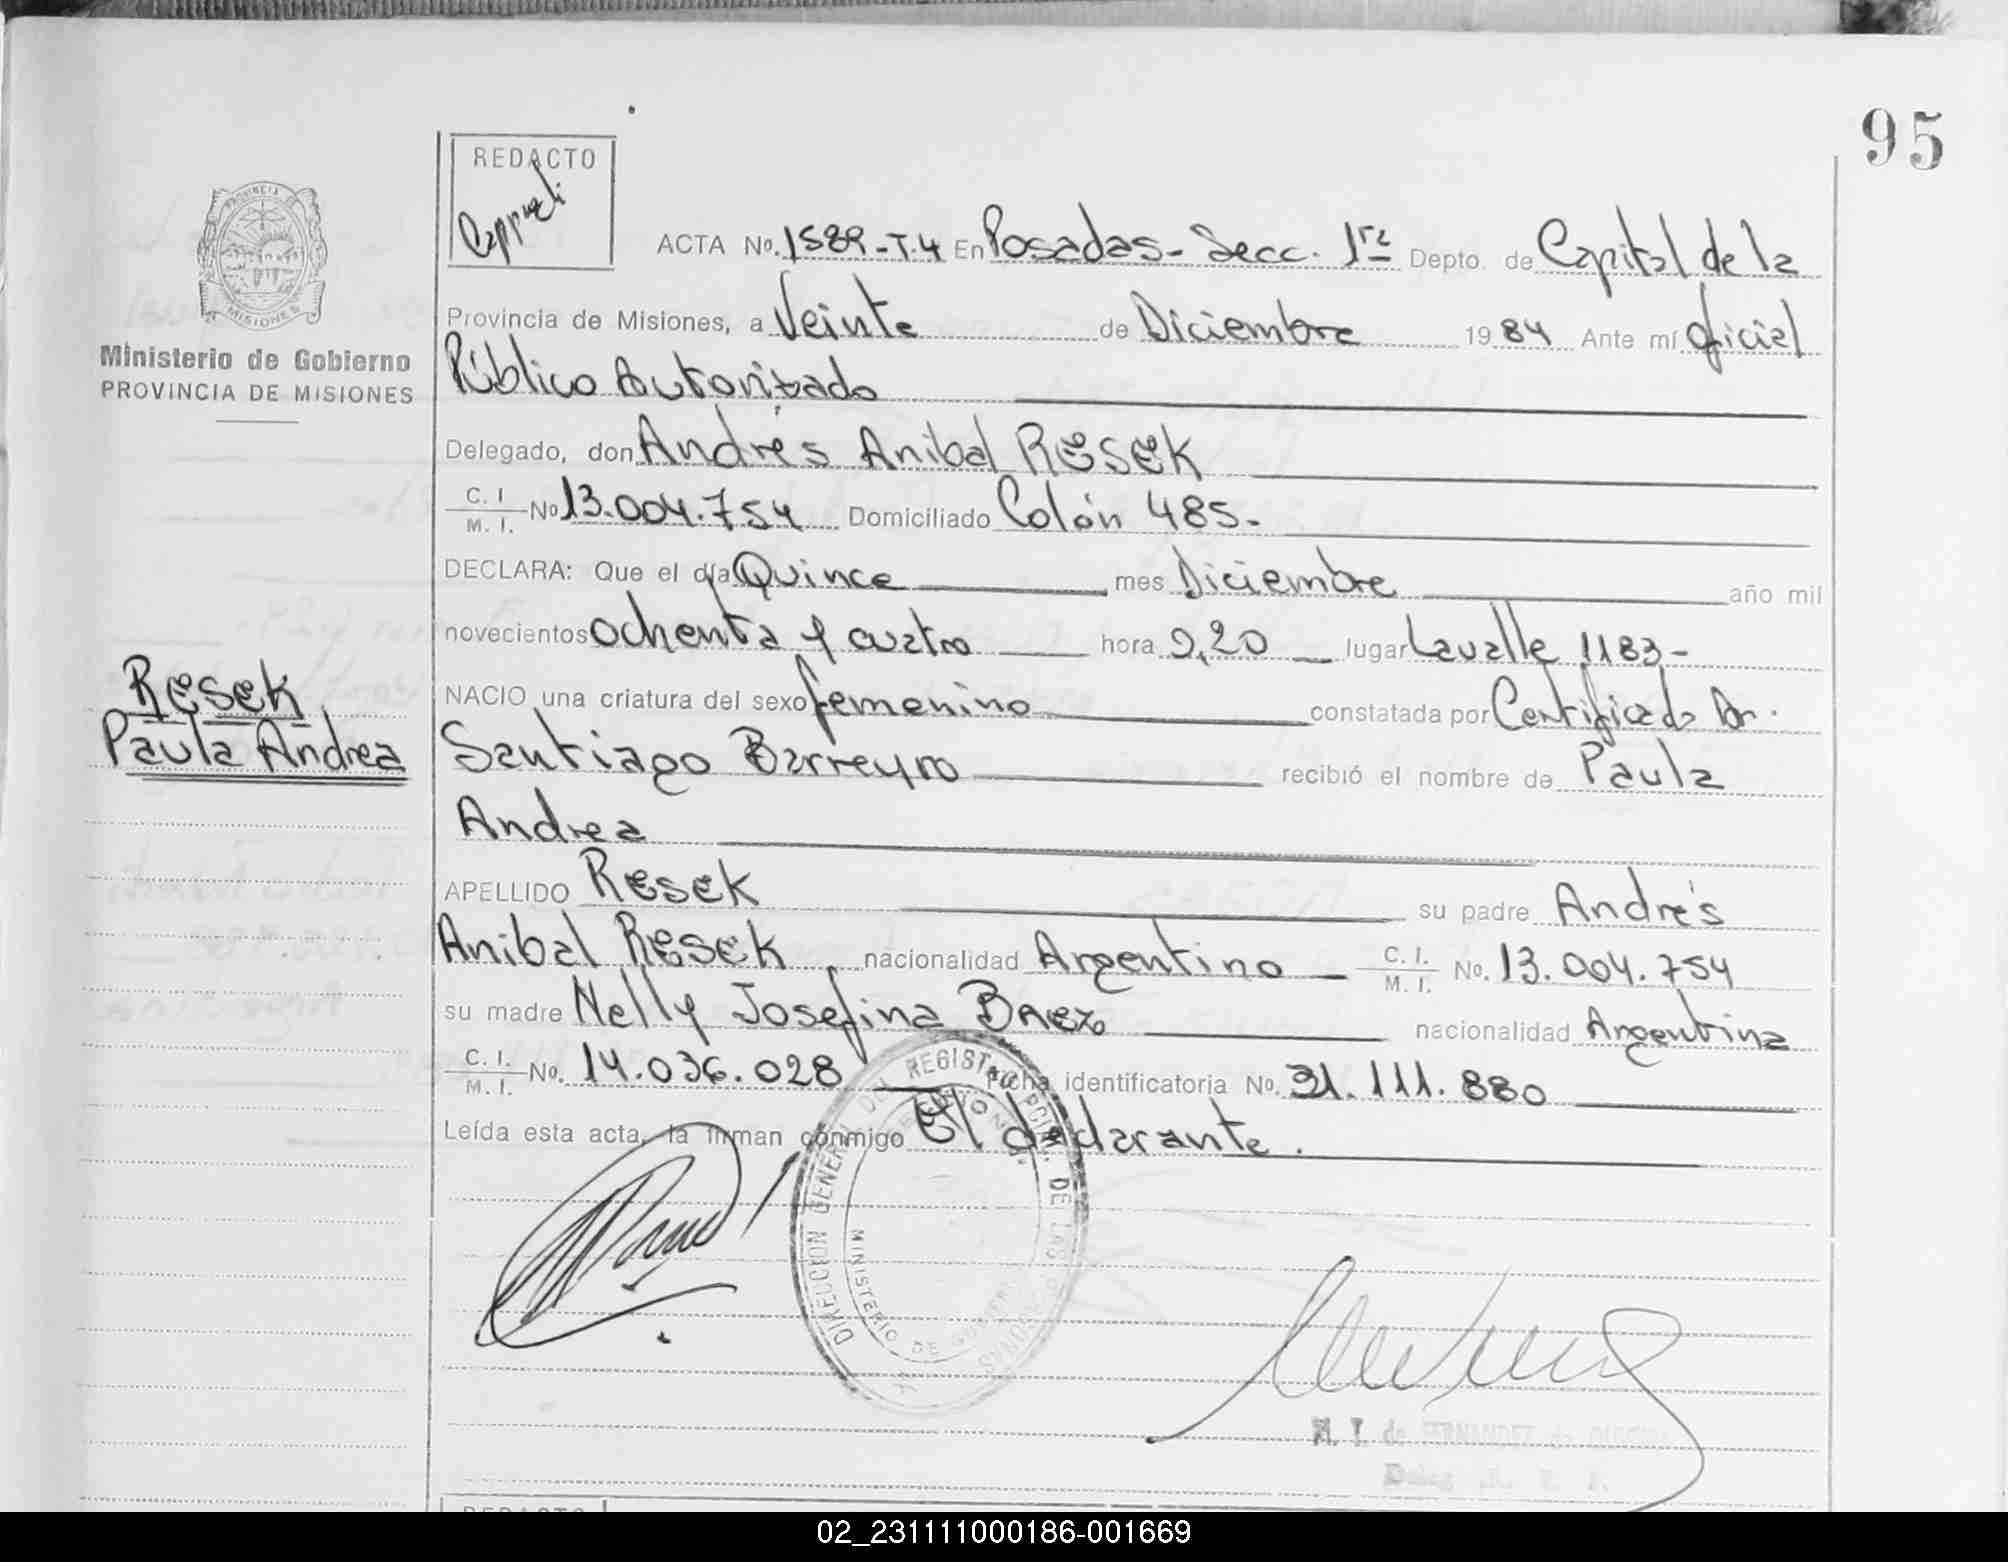 95
REDACTO
PROVINCIA
MISIONES
Ministerio de Gobierno
PROVINCIA DE MISIONES
ACTA Nº. 1589-T.4 En Posadas- Secc. 1ra Depto. de Capital de la
Provincia de Misiones, a Veinte de Diciembre 1984 Ante mí Oficial
Público Autorizado
Delegado, don Andrés Anibal Resek
C. I. M. I. Nº 13.004.754 Domiciliado Colón 485-
DECLARA: Que el día Quince mes Diciembre año mil
novecientos ochenta y cuatro hora 9,20 lugar Lavalle 1183-
NACIO una criatura del sexo femenino constatada por Certificado Dr.
Santiago Barreyro recibió el nombre de Paula
Andrea
APELLIDO Resek su padre Andrés
Anibal Resek, nacionalidad Argentino C. I. M. I. No. 13.004.754
su madre Nelly Josefina Baez nacionalidad Argentina
C. I. M. I. No. 14.036.028 Ficha identificatoria No. 31.111.880
Leída esta acta, la firman conmigo El declarante.
Resek
Paula Andrea
DIRECCION GENERAL DEL REGISTRO PCIAL. DE LAS PERSONAS
MINISTERIO DE GOBIERNO
M. I. de FERNANDEZ de
REDACTO
02_231111000186-001669